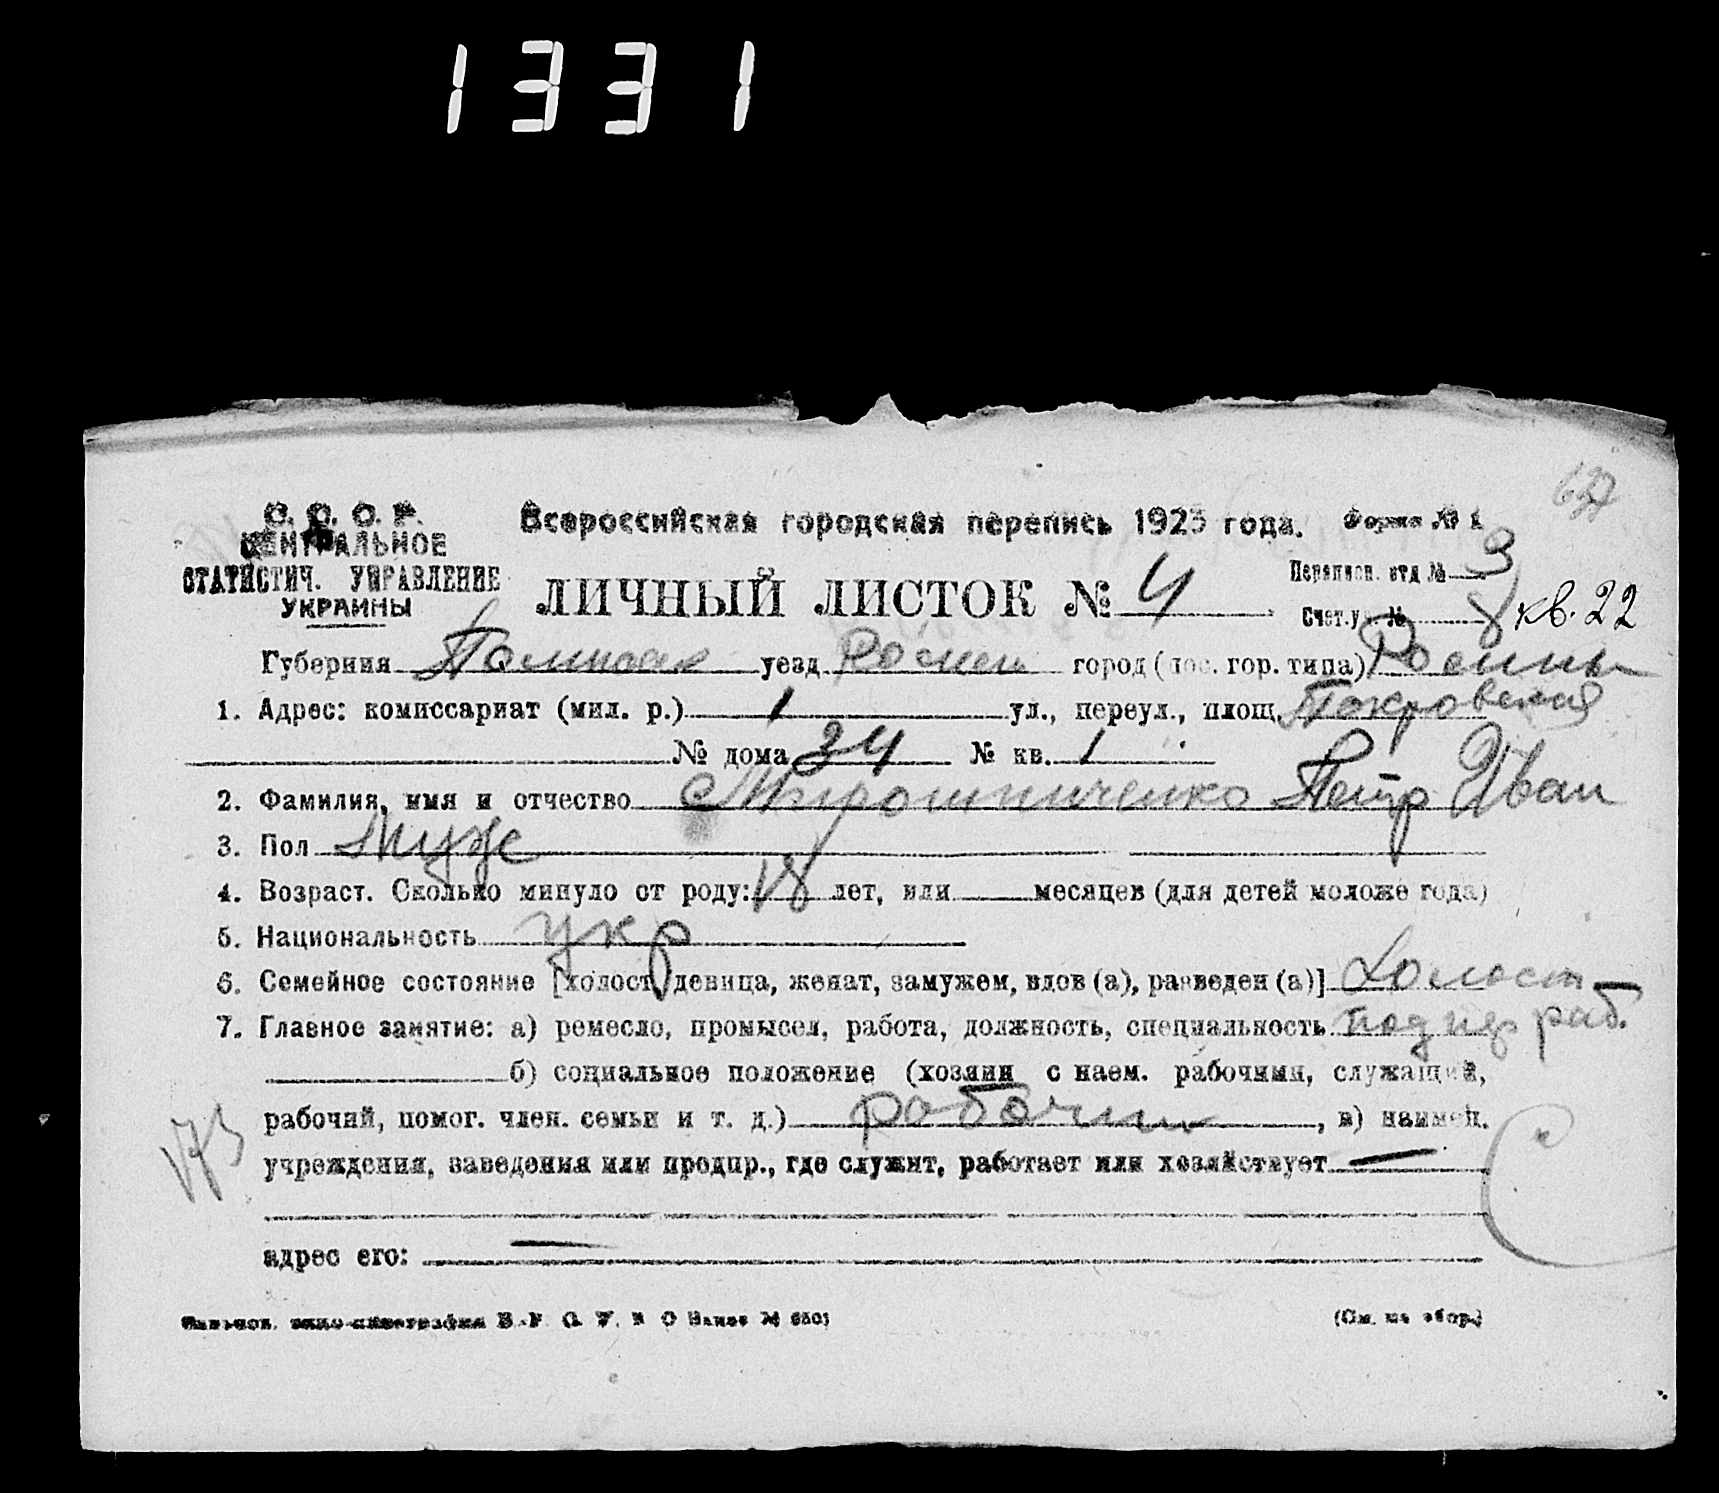 1331
С. С. С. Р.
ЦЕНТРАЛЬНОЕ
СТАТИСТИЧ. УПРАВЛЕНИЕ
УКРАИНЫ
Всероссийская городская перепись 1923 года.
Форма № 1
ЛИЧНЫЙ ЛИСТОК № 4
Переписн. отд № 3
Счет. уч. № 8 кв. 22
Губерния уезд Ромен город (пос. гор. типа) Ромны
1. Адрес: комиссариат (мил. р.) 1 ул., переул., площ. Покровская
№ дома 34 № кв. 1
2. Фамилия, имя и отчество Мирошниченко Петр Иван
3. Пол муж
4. Возраст. Сколько минуло от роду: 18 лет, или месяцев (для детей моложе года)
5. Национальность укр
6. Семейное состояние [холост, девица, женат, замужем, вдов (а), разведен (а)] холост
7. Главное занятие: а) ремесло, промысел, работа, должность, специальность раб.
б) социальное положение (хозяин с наем. рабочими, служащий,
рабочий, помог. член. семьи и т. д.) рабочий, в) наимен.
учреждения, заведения или предпр., где служит, работает или хозяйствует —
адрес его: —
(См. на обор.)